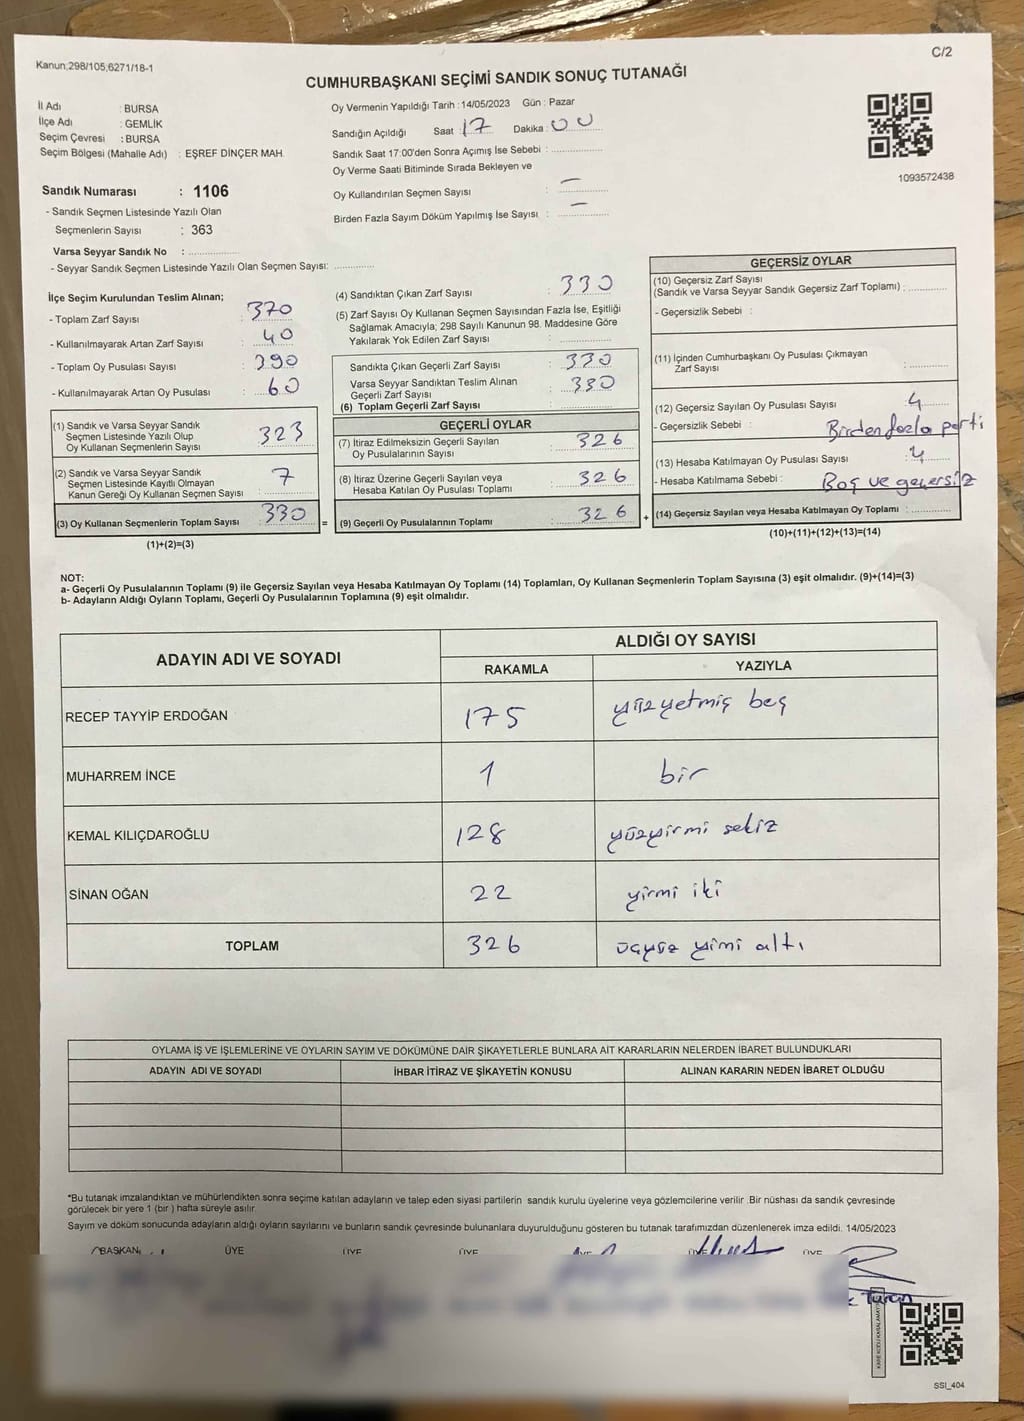 Kanun;298/105,6271/18-1
C/2
CUMHURBAŞKANI SEÇİMİ SANDIK SONUÇ TUTANAĞI
İl Adı : BURSA
İlçe Adı : GEMLİK
Seçim Çevresi : BURSA
Seçim Bölgesi (Mahalle Adı) : EŞREF DİNÇER MAH.
Sandık Numarası : 1106
- Sandık Seçmen Listesinde Yazılı Olan
Seçmenlerin Sayısı : 363
Varsa Seyyar Sandık No : ................
- Seyyar Sandık Seçmen Listesinde Yazılı Olan Seçmen Sayısı: .............
Oy Vermenin Yapıldığı Tarih : 14/05/2023 Gün : Pazar
Sandığın Açıldığı Saat : 17 Dakika : 00
Sandık Saat 17:00'den Sonra Açımış İse Sebebi : ................
Oy Verme Saati Bitiminde Sırada Bekleyen ve
Oy Kullandırılan Seçmen Sayısı : —
Birden Fazla Sayım Döküm Yapılmış İse Sayısı : —
1093572438
İlçe Seçim Kurulundan Teslim Alınan;
- Toplam Zarf Sayısı : 370
- Kullanılmayarak Artan Zarf Sayısı : 40
- Toplam Oy Pusulası Sayısı : 390
- Kullanılmayarak Artan Oy Pusulası : 60
(1) Sandık ve Varsa Seyyar Sandık
Seçmen Listesinde Yazılı Olup
Oy Kullanan Seçmenlerin Sayısı : 323
(2) Sandık ve Varsa Seyyar Sandık
Seçmen Listesinde Kayıtlı Olmayan
Kanun Gereği Oy Kullanan Seçmen Sayısı : 7
(3) Oy Kullanan Seçmenlerin Toplam Sayısı : 330 =
(1)+(2)=(3)
(4) Sandıktan Çıkan Zarf Sayısı : 330
(5) Zarf Sayısı Oy Kullanan Seçmen Sayısından Fazla İse, Eşitliği
Sağlamak Amacıyla; 298 Sayılı Kanunun 98. Maddesine Göre
Yakılarak Yok Edilen Zarf Sayısı : .............
Sandıkta Çıkan Geçerli Zarf Sayısı : 330
Varsa Seyyar Sandıktan Teslim Alınan
Geçerli Zarf Sayısı : 330
(6) Toplam Geçerli Zarf Sayısı : .............
GEÇERLİ OYLAR
(7) İtiraz Edilmeksizin Geçerli Sayılan
Oy Pusulalarının Sayısı : 326
(8) İtiraz Üzerine Geçerli Sayılan veya
Hesaba Katılan Oy Pusulası Toplamı : 326
(9) Geçerli Oy Pusulalarının Toplamı : 326 +
GEÇERSİZ OYLAR
(10) Geçersiz Zarf Sayısı
(Sandık ve Varsa Seyyar Sandık Geçersiz Zarf Toplamı) : ............
- Geçersizlik Sebebi :
(11) İçinden Cumhurbaşkanı Oy Pusulası Çıkmayan
Zarf Sayısı : ............
(12) Geçersiz Sayılan Oy Pusulası Sayısı : 4
- Geçersizlik Sebebi : Birden fazla parti
(13) Hesaba Katılmayan Oy Pusulası Sayısı : 4
- Hesaba Katılmama Sebebi : Boş ve geçersiz
(14) Geçersiz Sayılan veya Hesaba Katılmayan Oy Toplamı : ............
(10)+(11)+(12)+(13)=(14)
NOT:
a- Geçerli Oy Pusulalarının Toplamı (9) ile Geçersiz Sayılan veya Hesaba Katılmayan Oy Toplamı (14) Toplamları, Oy Kullanan Seçmenlerin Toplam Sayısına (3) eşit olmalıdır. (9)+(14)=(3)
b- Adayların Aldığı Oyların Toplamı, Geçerli Oy Pusulalarının Toplamına (9) eşit olmalıdır.
ADAYIN ADI VE SOYADI ALDIĞI OY SAYISI
RAKAMLA YAZIYLA
RECEP TAYYİP ERDOĞAN 175 yüzyetmiş beş
MUHARREM İNCE 1 bir
KEMAL KILIÇDAROĞLU 128 yüzyirmi sekiz
SİNAN OĞAN 22 yirmi iki
TOPLAM 326 üçyüz yimi altı
OYLAMA İŞ VE İŞLEMLERİNE VE OYLARIN SAYIM VE DÖKÜMÜNE DAİR ŞİKAYETLERLE BUNLARA AİT KARARLARIN NELERDEN İBARET BULUNDUKLARI
ADAYIN ADI VE SOYADI İHBAR İTİRAZ VE ŞİKAYETİN KONUSU ALINAN KARARIN NEDEN İBARET OLDUĞU
*Bu tutanak imzalandıktan ve mühürlendikten sonra seçime katılan adayların ve talep eden siyasi partilerin sandık kurulu üyelerine veya gözlemcilerine verilir .Bir nüshası da sandık çevresinde
görülecek bir yere 1 (bir ) hafta süreyle asılır.
Sayım ve döküm sonucunda adayların aldığı oyların sayılarını ve bunların sandık çevresinde bulunanlara duyurulduğunu gösteren bu tutanak tarafımızdan düzenlenerek imza edildi. 14/05/2023
BAŞKAN ÜYE ÜYE ÜYE ÜYE ÜYE ÜYE
SSI_404